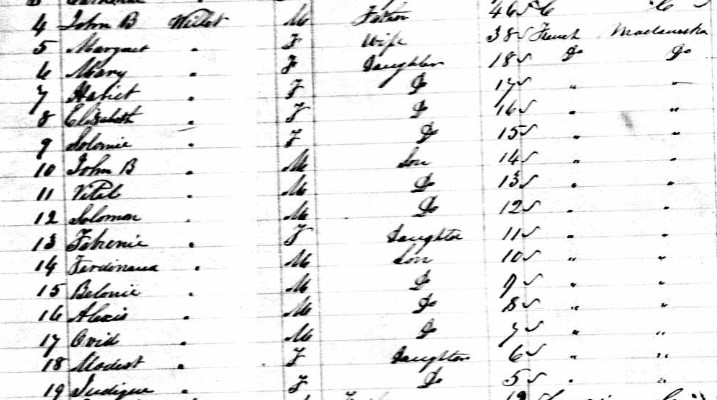 4 John B Willet M Father 46
5 Margaret " F Wife 38 French Madawaska
6 Mary " F Daughter 18 Do Do
7 Hariet F Do 17 " "
8 Elizabeth " F Do 16 " "
9 Solomie " F Do 15 " "
10 John B " M Son 14 " "
11 Vital " M Do 13 " "
12 Soloman " M Do 12 " "
13 " F Daughter 11 " "
14 Ferdinand " M Son 10 " "
15 Belonie " M Do 9 " "
16 Alexis " M Do 8 " "
17 Ovid " M Do 7 " "
18 Modest " F Daughter 6 " "
19 " F Do 5 " "